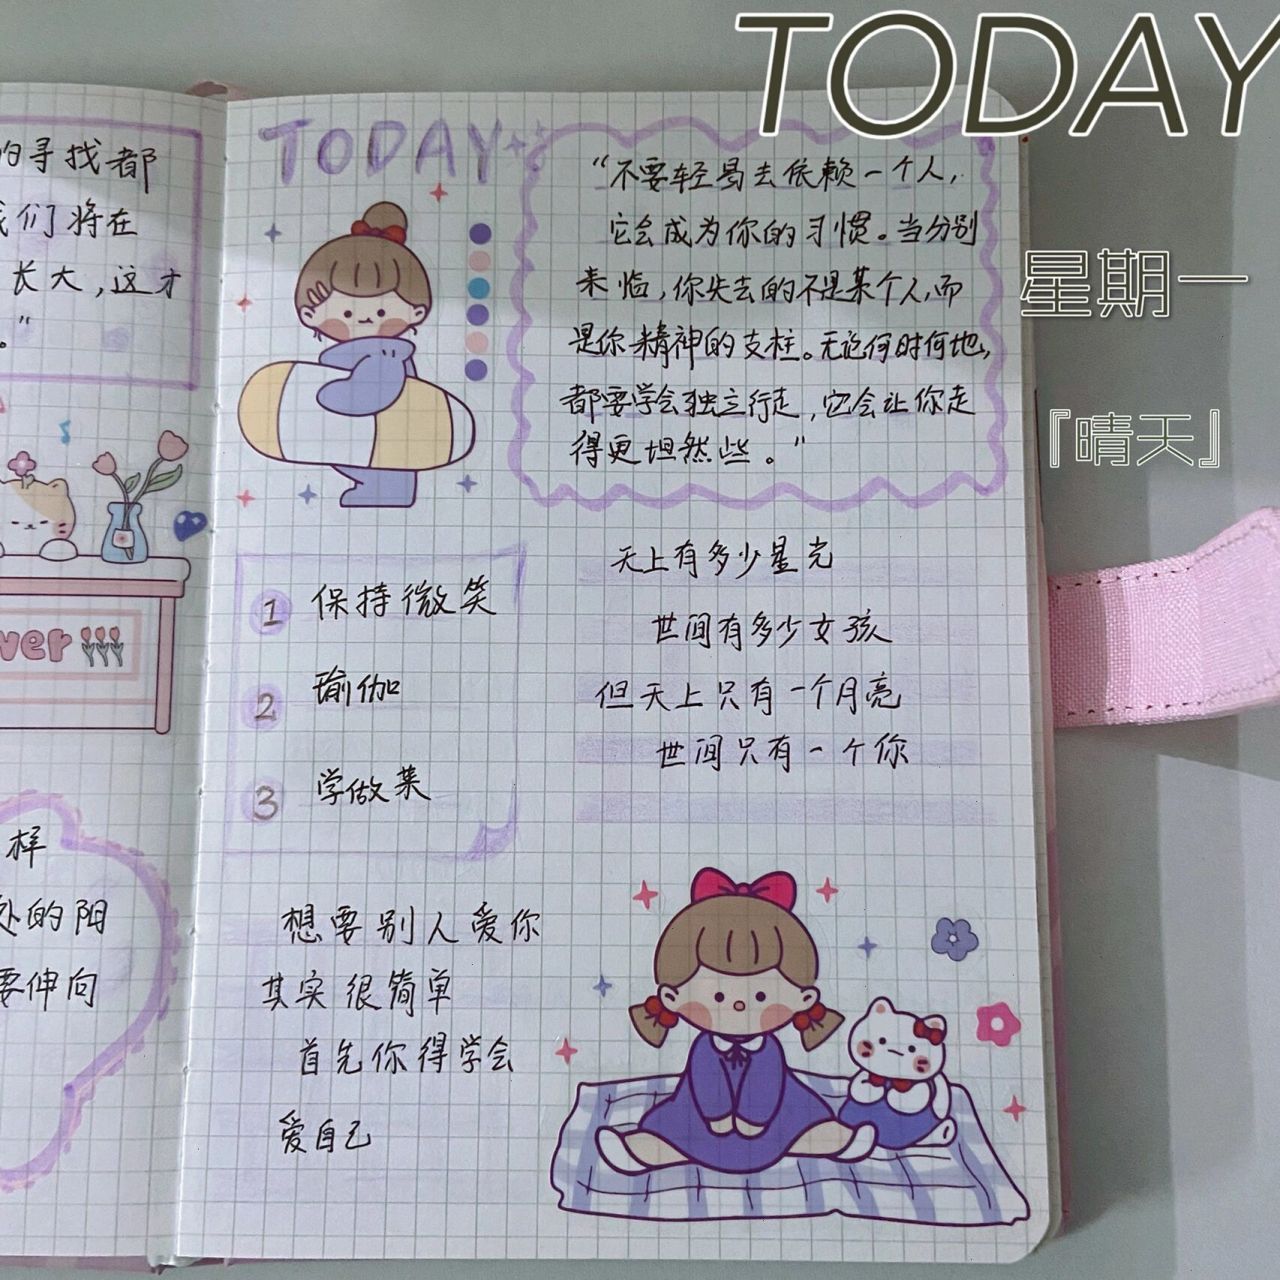 TODAY
星期一
『晴天』
的寻找都
我们将在
长大，这才
。”
ver
样
处的阳
要伸向
TODAY
“不要轻易去依赖一个人，
它会成为你的习惯。当分别
来临，你失去的不是某个人，而
是你精神的支柱。无论何时何地，
都要学会独立行走，它会让你走
得更坦然些。”
1 保持微笑
2 瑜伽
3 学做菜
天上有多少星光
世间有多少女孩
但天上只有一个月亮
世间只有一个你
想要别人爱你
其实很简单
首先你得学会
爱自己